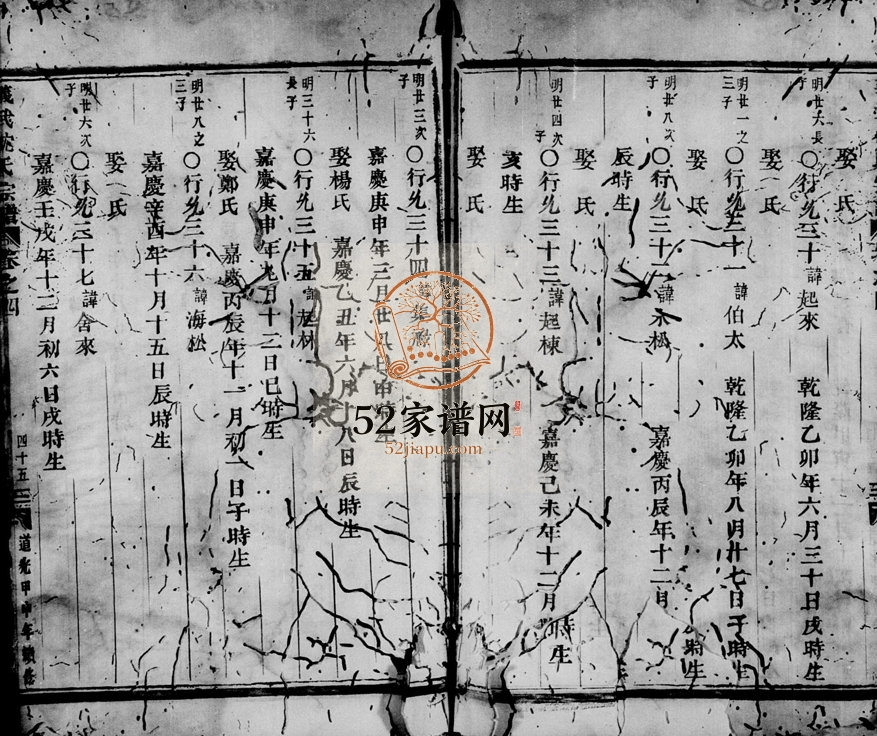 娶 氏
明廿六長子 〇行光三十 諱起來 乾隆乙卯年六月三十日戌時生
娶 氏
明廿一之三子 〇行光三十一 諱伯太 乾隆乙卯年八月廿七日子時生
娶 氏
明廿八次子 〇行光三十二 諱木松 嘉慶丙辰年十二月
辰時生
娶 氏
明廿四次子 〇行光三十三 諱起棟 嘉慶己未年十二月 時生
亥時生
娶 氏
明廿三次子 〇行光三十四
嘉慶庚申年三月廿 日申時生
娶楊氏 嘉慶乙丑年六月十八日辰時生
明三十六長子 〇行光三十五 諱起林
嘉慶庚申年九月十二日巳時生
娶鄭氏 嘉慶丙辰年十一月初一日子時生
明廿八之三子 〇行光三十六 諱海松
嘉慶辛酉年十月十五日辰時生
娶 氏
明廿六次子 〇行光三十七 諱舍來
嘉慶壬戌年十二月初六日戌時生
氏宗譜 卷之四
四十五
道光甲申年續修
52家谱网
52jiapu.com